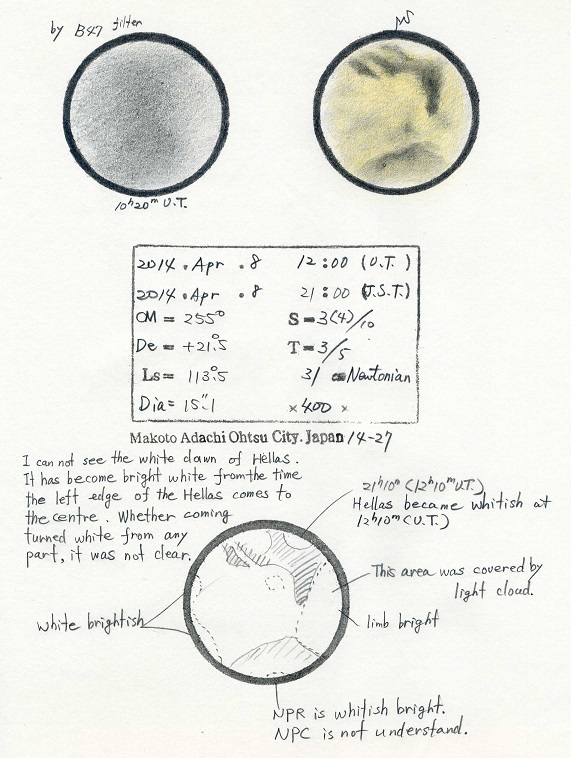 by B47 filter
10ʰ20ᵐ U.T.
2014 . Apr . 8 12:00 (U.T.)
2014 . Apr . 8 21:00 (J.S.T.)
CM = 255°
S = 3(4)/10
De = +21.°5
T = 3/5
Ls = 113.°5
31 cm Newtonian
Dia = 15."1
×400 ×
Makoto Adachi Ohtsu City. Japan 14-27
I can not see the white dawn of Hellas.
It has become bright white from the time
the left edge of the Hellas comes to
the centre. Whether coming
turned white from any
part, it was not clear.
21ʰ10ᵐ (12ʰ10ᵐ U.T.)
Hellas became whitish at
12ʰ10ᵐ (U.T.)
This area was covered by
light cloud.
limb bright
white brightish
NPR is whitish bright.
NPC is not understand.